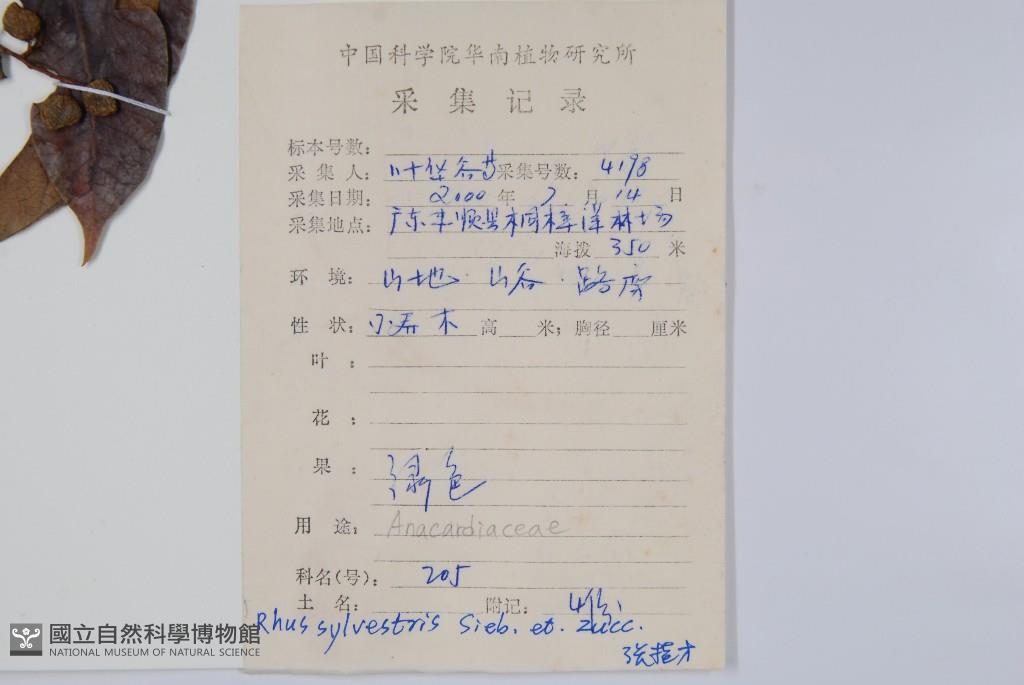 中国科学院华南植物研究所
采集记录
标本号数：
采集人：叶华谷 采集号数：4198
采集日期：2000年7月14日
采集地点：广东丰顺县桐梓洋林场
海拨 350 米
环境：山地．山谷．路旁
性状：小乔木 高 米；胸径 厘米
叶：
花：
果：绿色
用途：Anacardiaceae
科名(号)：205
土名： 附记：4份
Rhus sylvestris Sieb. et. Zucc.
國立自然科學博物館
NATIONAL MUSEUM OF NATURAL SCIENCE